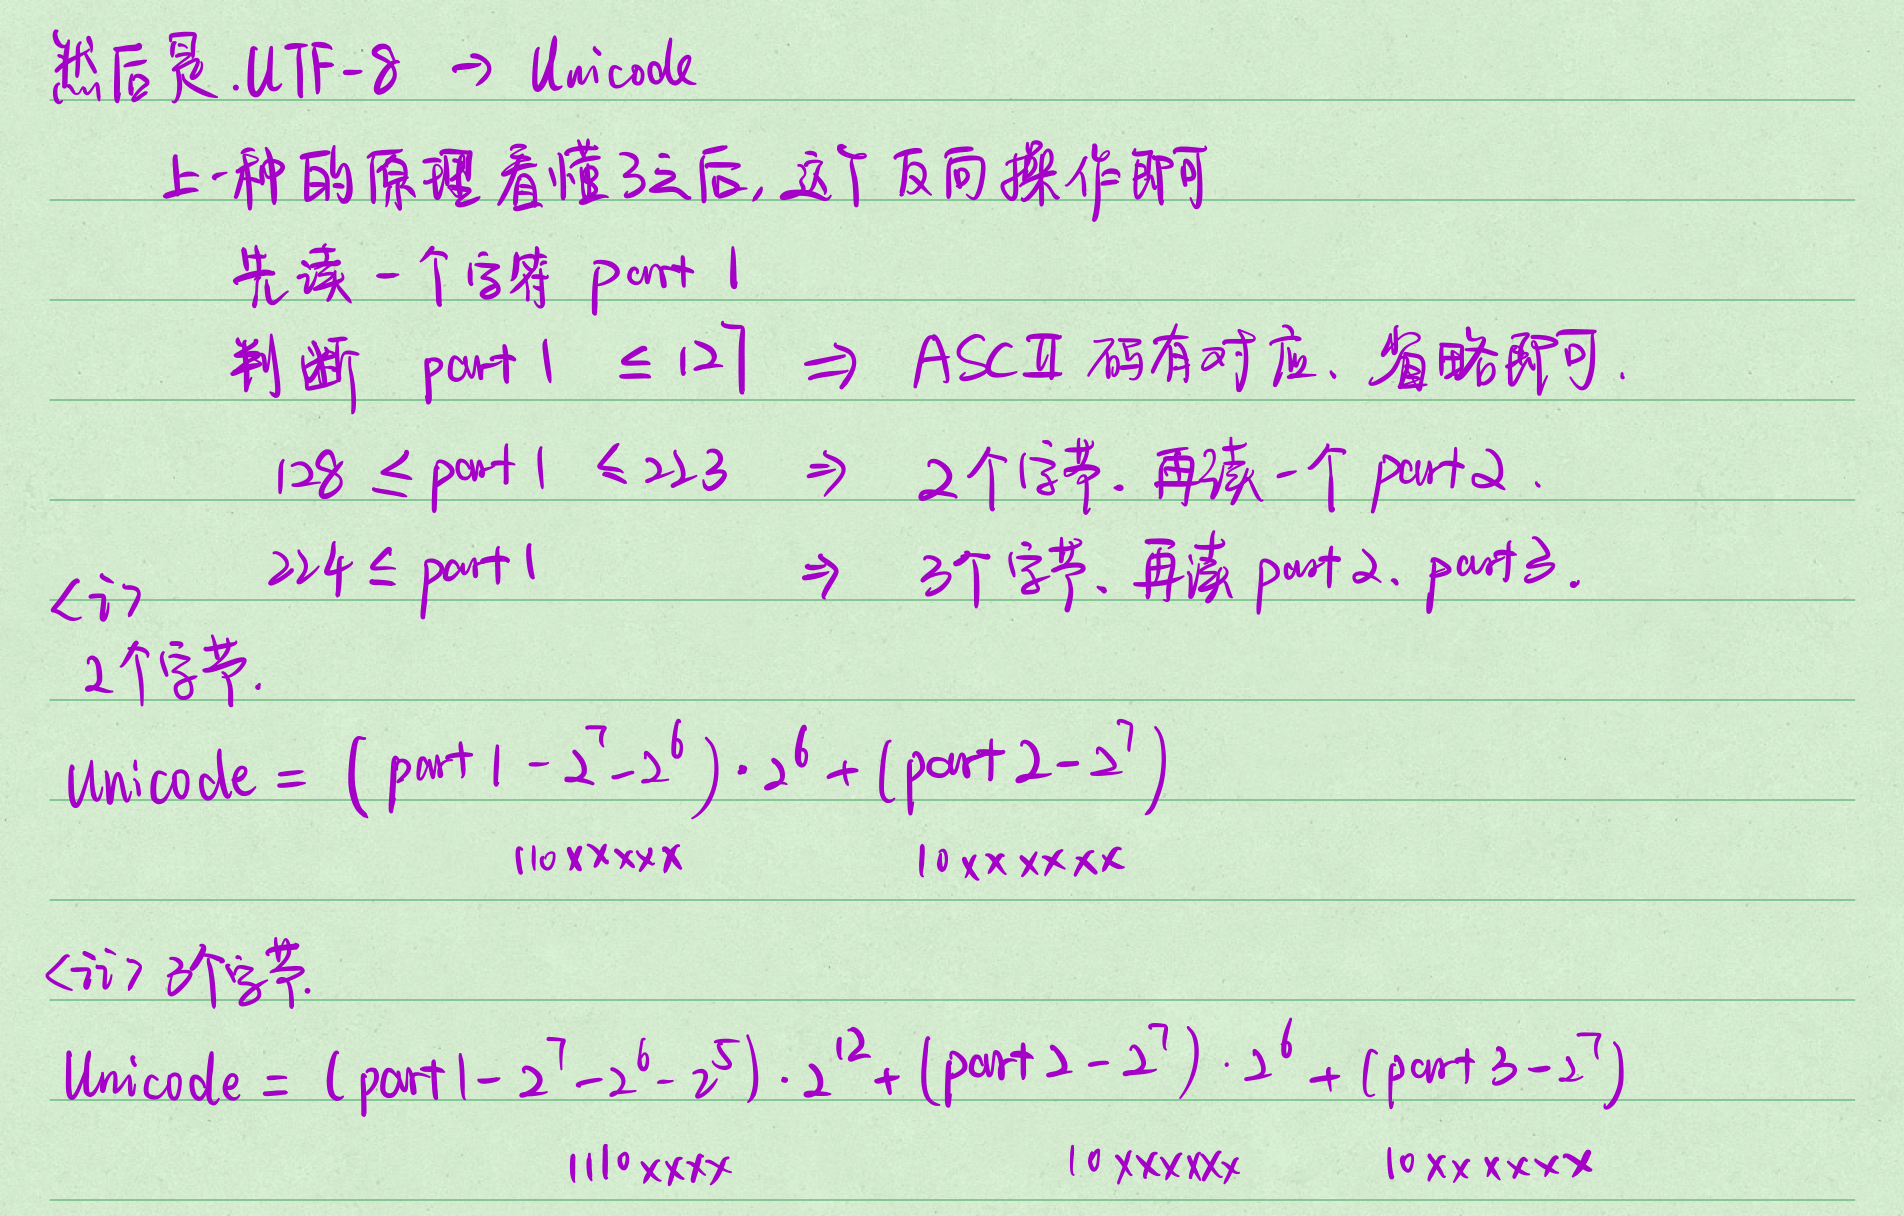 然后是.UTF-8 → Unicode
上一种的原理看懂了之后,这个反向操作即可
先读一个字符 part 1
判断 part 1 ≤ 127 ⇒ ASCII 码有对应、省略即可.
128 ≤ part 1 ≤ 223 ⇒ 2个字节. 再读一个 part 2.
224 ≤ part 1 ⇒ 3个字节、再读 part 2、part 3.
<i>
2个字节.
Unicode = (part 1 - 2⁷ - 2⁶)·2⁶ + (part 2 - 2⁷)
110xxxxx 10xxxxxx
<ii> 3个字节.
Unicode = (part 1 - 2⁷ - 2⁶ - 2⁵)·2¹² + (part 2 - 2⁷)·2⁶ + (part 3 - 2⁷)
1110xxxx 10xxxxxx 10xxxxxx